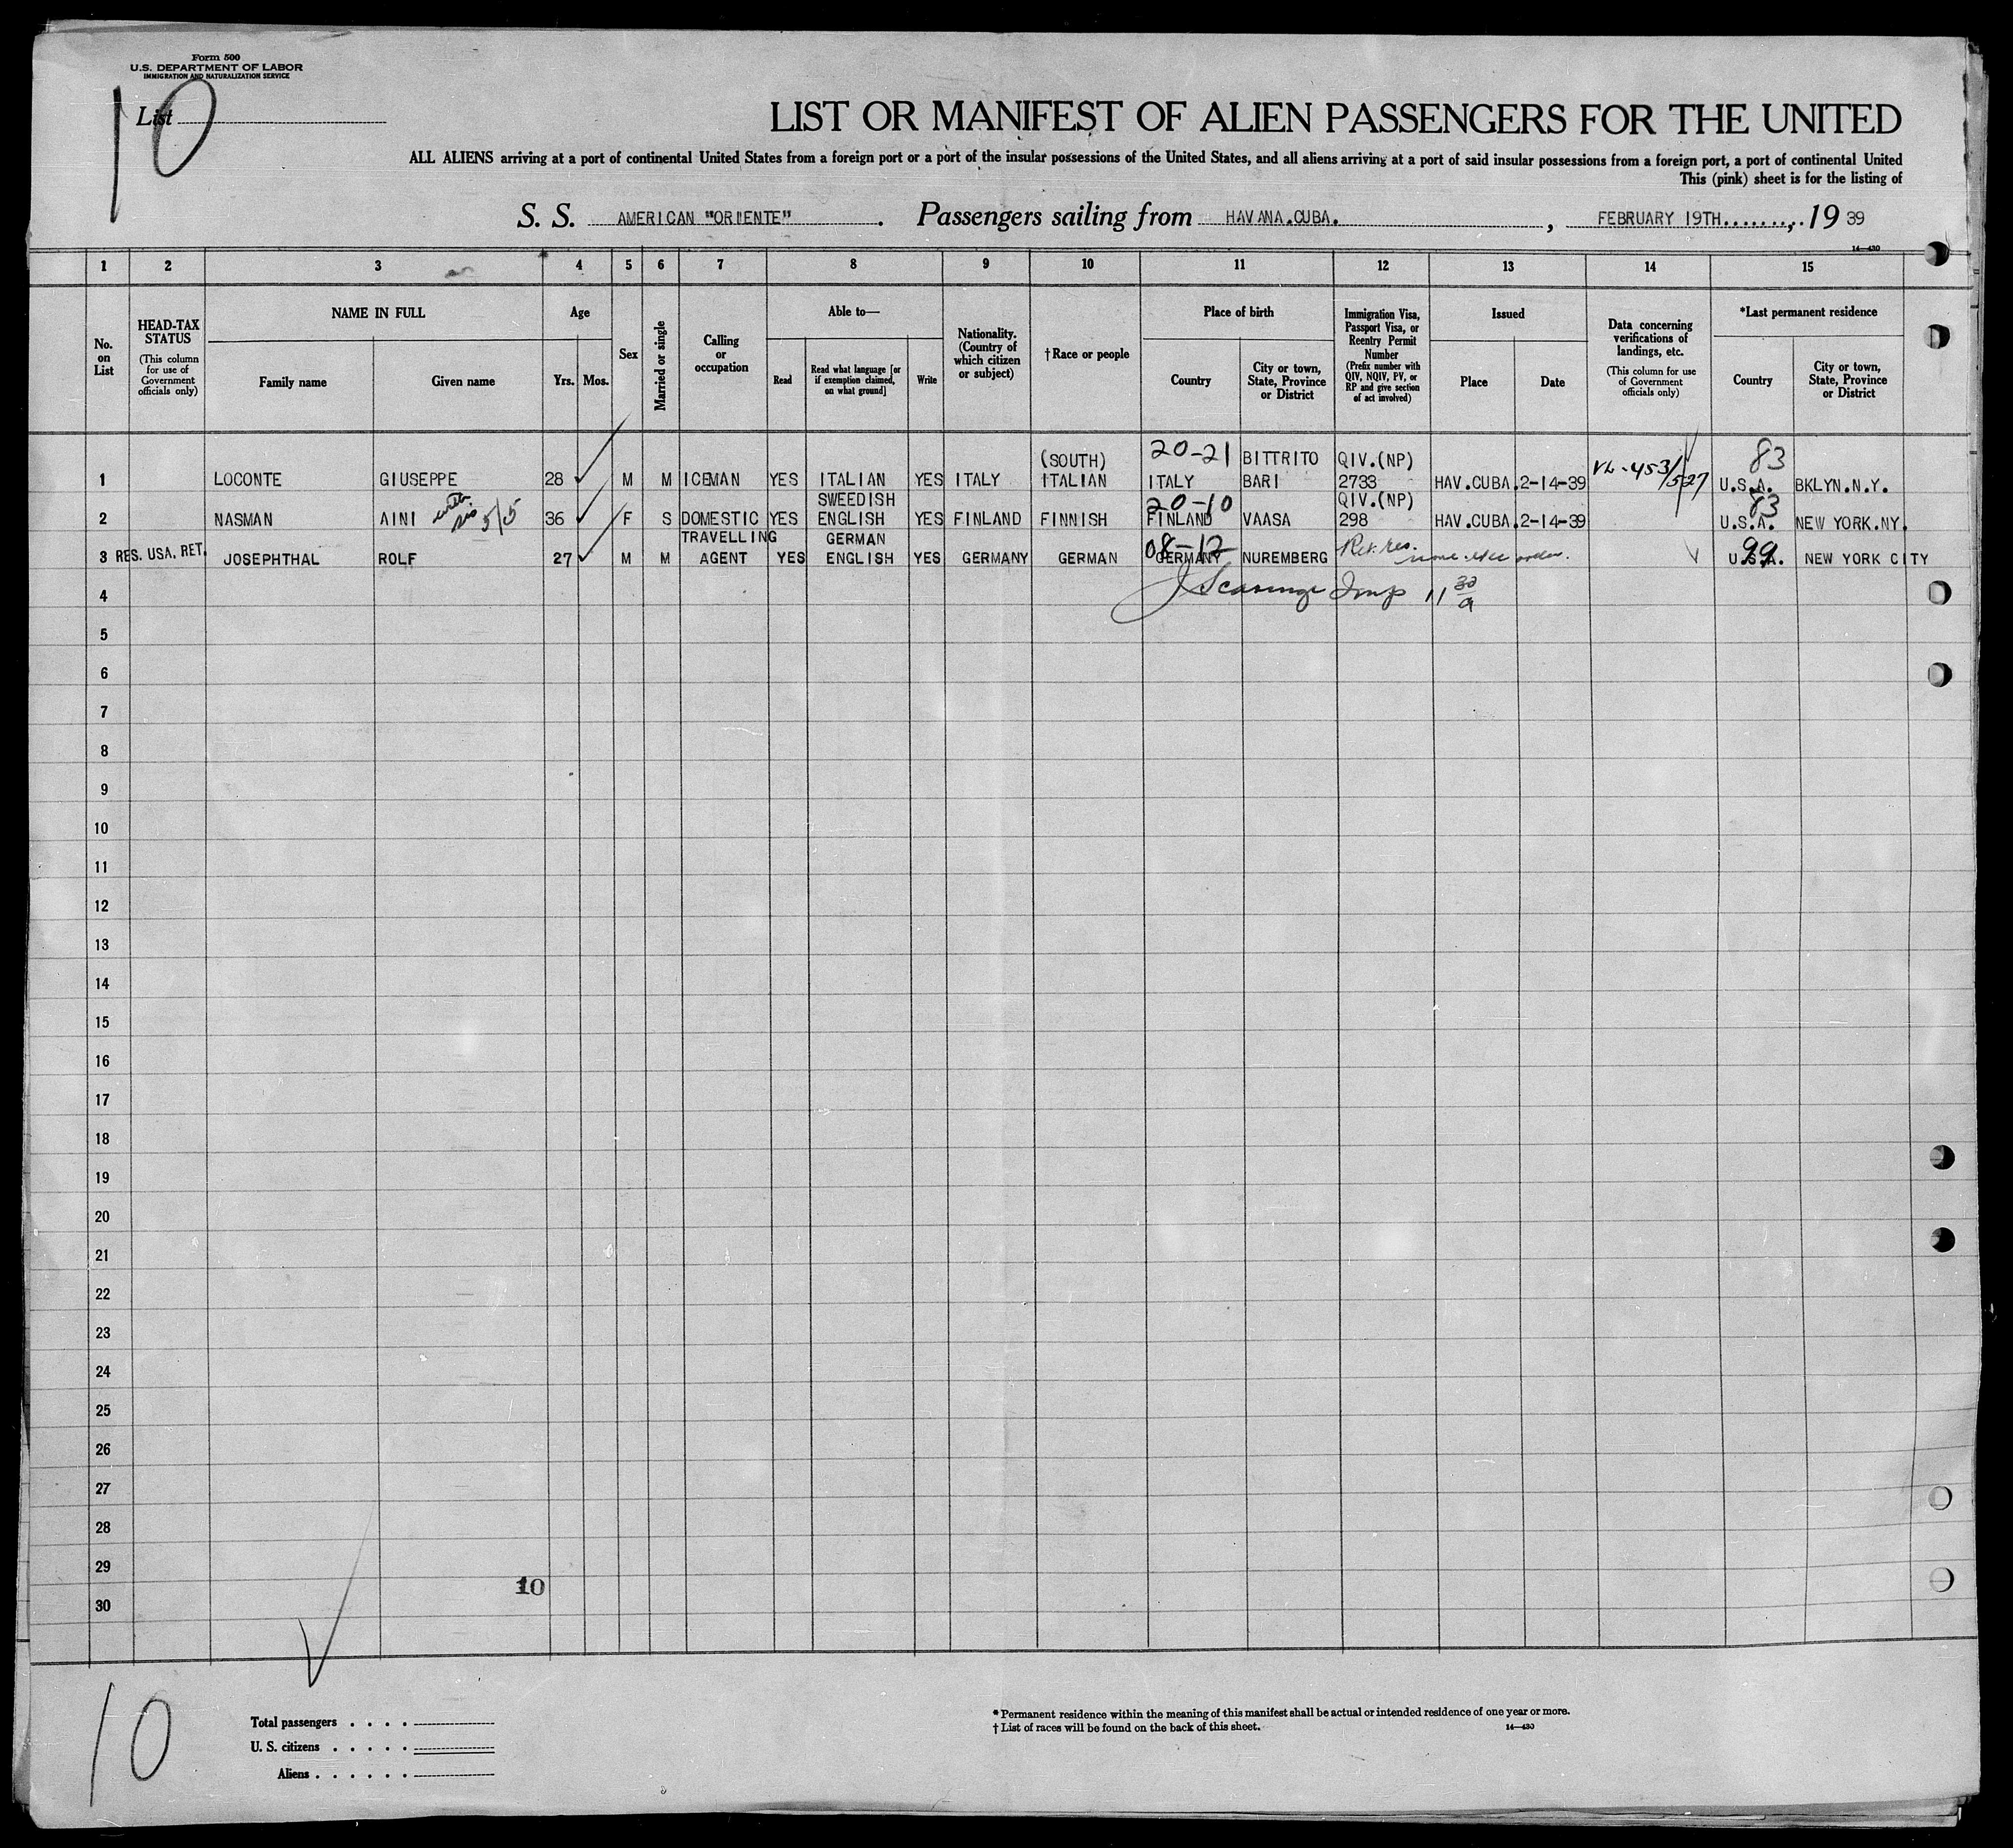 Form 500
U.S. DEPARTMENT OF LABOR
IMMIGRATION AND NATURALIZATION SERVICE
List
10
LIST OR MANIFEST OF ALIEN PASSENGERS FOR THE UNITED
ALL ALIENS arriving at a port of continental United States from a foreign port or a port of the insular possessions of the United States, and all aliens arriving at a port of said insular possessions from a foreign port, a port of continental United
This (pink) sheet is for the listing of
S. S. AMERICAN "ORIENTE". Passengers sailing from HAVANA.CUBA., FEBRUARY 19TH........., 19 39
14—430
1 2 3 4 5 6 7 8 9 10 11 12 13 14 15
No. on List
HEAD-TAX STATUS (This column for use of Government officials only)
NAME IN FULL
Family name Given name
Age
Yrs. Mos.
Sex
Married or single
Calling or occupation
Able to—
Read
Read what language [or if exemption claimed, on what ground]
Write
Nationality. (Country of which citizen or subject)
†Race or people
Place of birth
Country
City or town, State, Province or District
Immigration Visa, Passport Visa, or Reentry Permit Number (Prefix number with QIV, NQIV, PV, or RP and give section of act involved)
Issued
Place Date
Data concerning verifications of landings, etc. (This column for use of Government officials only)
*Last permanent residence
Country
City or town, State, Province or District
(SOUTH) 20-21 BITTRITO QIV.(NP) 83
1 LOCONTE GIUSEPPE 28 M M ICEMAN YES ITALIAN YES ITALY ITALIAN ITALY BARI 2733 HAV.CUBA.2-14-39 U.S.A. BKLYN.N.Y.
SWEEDISH 20-10 QIV.(NP) 83
2 NASMAN AINI 5/5 36 F S DOMESTIC YES ENGLISH YES FINLAND FINNISH FINLAND VAASA 298 HAV.CUBA.2-14-39 U.S.A. NEW YORK.NY.
TRAVELLING GERMAN 08-12 99
3 RES. USA. RET. JOSEPHTHAL ROLF 27 M M AGENT YES ENGLISH YES GERMANY GERMAN GERMANY NUREMBERG U.S.A. NEW YORK CITY
4
5
6
7
8
9
10
11
12
13
14
15
16
17
18
19
20
21
22
23
24
25
26
27
28
29
10
30
10
Total passengers . . . .
U. S. citizens . . . . .
Aliens . . . . . .
* Permanent residence within the meaning of this manifest shall be actual or intended residence of one year or more.
† List of races will be found on the back of this sheet.
14—430